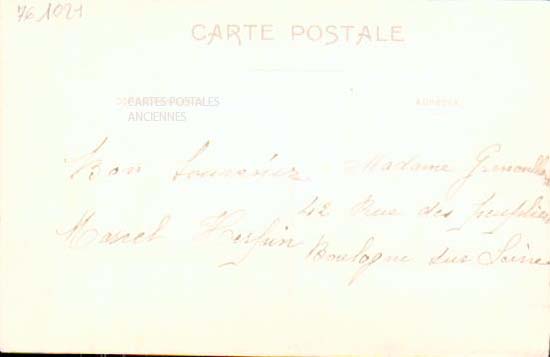 76 1021
CARTE POSTALE
CARTES POSTALES
ANCIENNES
ADRESSE
Bon Souvenir
Marcel
Madame
42 Rue des Peupliers
Boulogne sur Seine